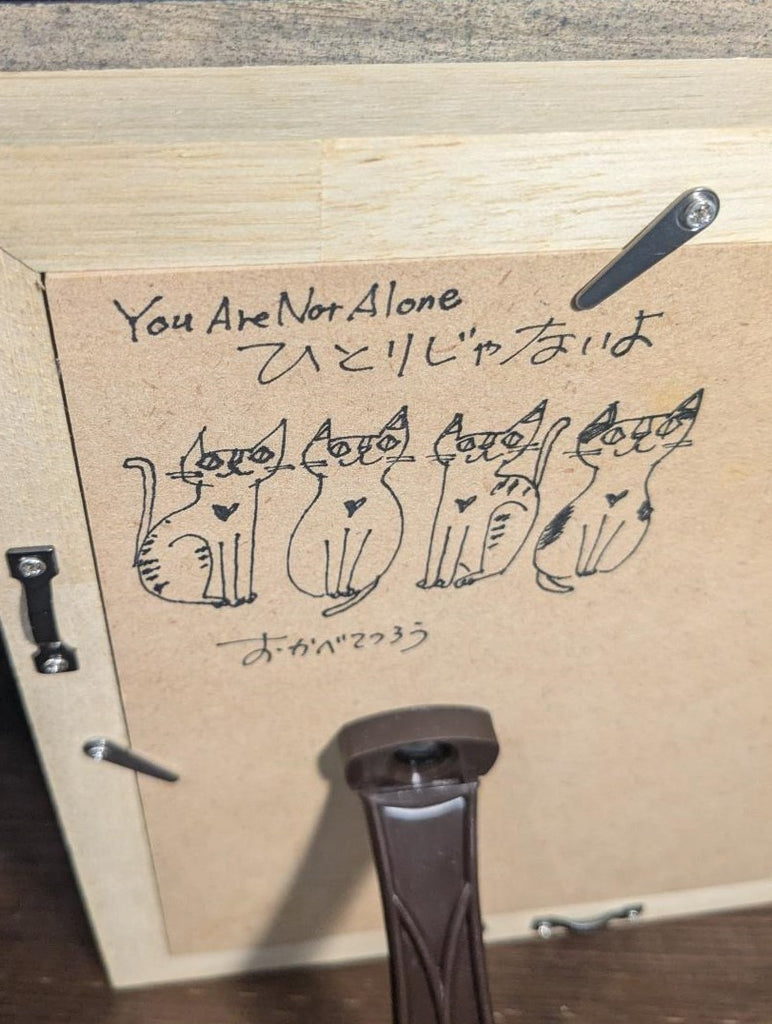 You Are Not Alone
ひとりじゃないよ
おかべてつろう